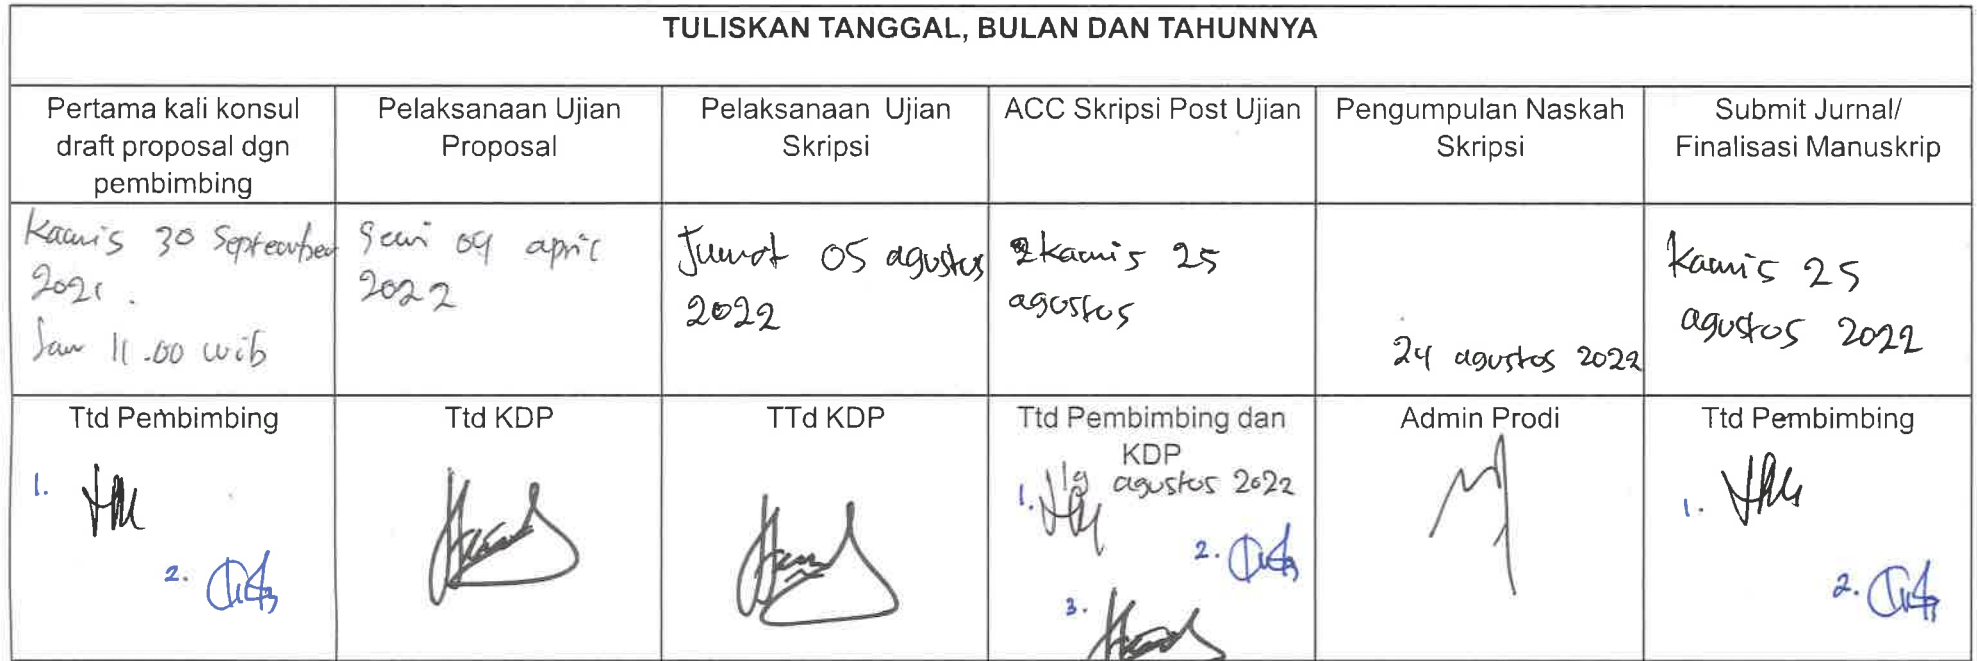 TULISKAN TANGGAL, BULAN DAN TAHUNNYA
Pertama kali konsul
draft proposal dgn
pembimbing
Pelaksanaan Ujian
Proposal
Pelaksanaan Ujian
Skripsi
ACC Skripsi Post Ujian
Pengumpulan Naskah
Skripsi
Submit Jurnal/
Finalisasi Manuskrip
Kamis 30 September
2021.
Jam 11.00 wib
april
2022
Jumat 05 agustus
2022
kamis 25
agustus
24 agustus 2022
Kamis 25
agustus 2022
Ttd Pembimbing
1.
2.
Ttd KDP
TTd KDP
Ttd Pembimbing dan
KDP
19 agustus 2022
1.
2.
3.
Admin Prodi
Ttd Pembimbing
1.
2.